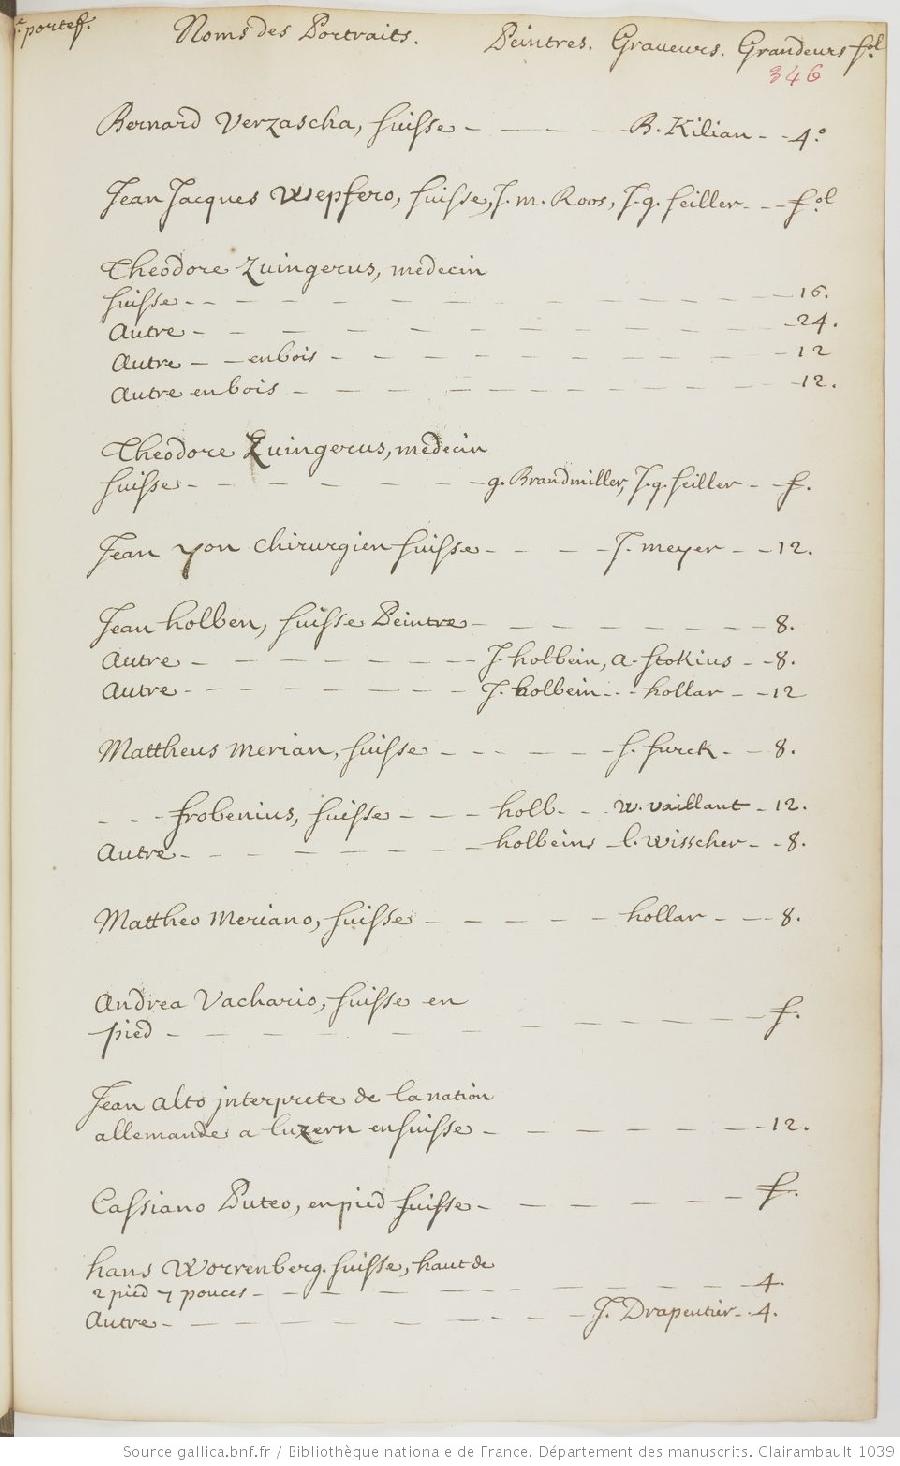 e. portef. Noms des Portraits. Peintres. Graveurs. Grandeurs fol.
346
Bernard Verzascha, suisse - — — - B. Kilian - - 4.o
Jean Jacques Wepfero, suisse, J. m. Roos, J. g. seiller - - - fol
Theodore Zuingerus, medecin
suisse - - — — — — — — — — — — — 16.
Autre - — — — — — — — — — — 24.
Autre — — en bois — — — — — — — — - 12
Autre en bois — — — — — — — — — - 12.
Theodore Zuingerus, medecin
suisse - — — — — — g. Brandmiller, J. g. seiller - - f.
Jean yon chirurgien suisse - — — - J. meyer - - 12.
Jean holben, suisse Peintre - — — — — — — - 8.
Autre — — — — — — - J. holbein, a. stokius - - 8.
Autre - — — — — — — J. holbein - . - hollar - - 12
Mattheus merian, suisse - - — — — s. furck - - 8.
- - - frobenius, suisse - — - holb - . - w. vaillant - 12.
Autre - — — — — — — holbeins - l. wisscher - - 8.
Mattheo Meriano, suisse — — — — — hollar - — 8.
Andrea Vachario, suisse en
pied - — — — — — — — — — — f.
Jean alto jnterprete de la nation
allemande a luzern en suisse - — — — — — — 12.
Cassiano Puteo, en pied suisse - — — — — — — f.
hans Worrenberg. suisse, haut de
2 pied 7 pouces - — — — — — — — — — 4.
Autre - — — — — — — - - - J. Drapentier - . 4.
Source gallica.bnf.fr / Bibliothèque nationale de France. Département des manuscrits. Clairambault 1039